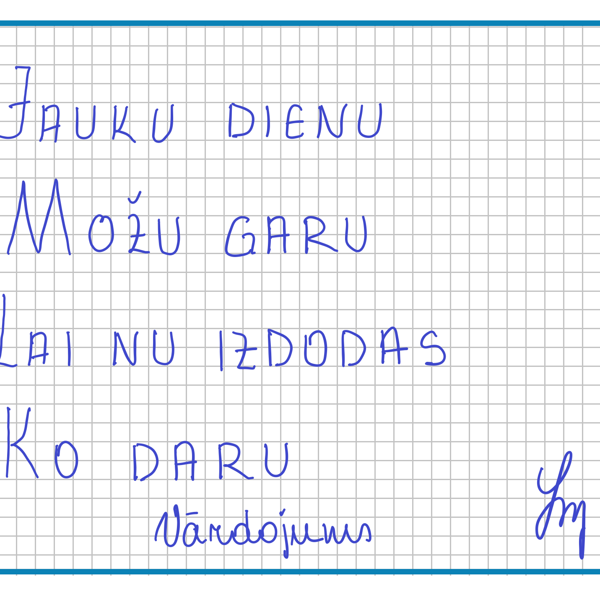 JAUKU DIENU
MOŽU GARU
LAI NU IZDODAS
KO DARU
Vārdojums